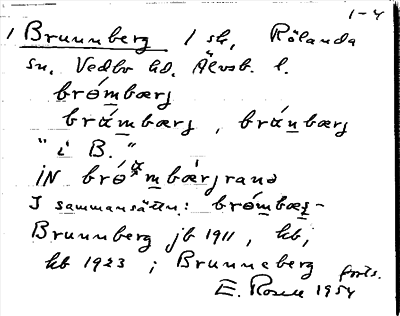 1-4
1 Brunnberg 1 sk, Rölanda
sn, Vedbo hd, Älvsb. l.
brómbærj
brámbærj, bránbærj
"i B."
IN brómbærjrana
I sammansättn: brómbærj-
Brunnberg jb 1911, kb,
hb 1923; Brunneberg forts.
E. Rosell 1954